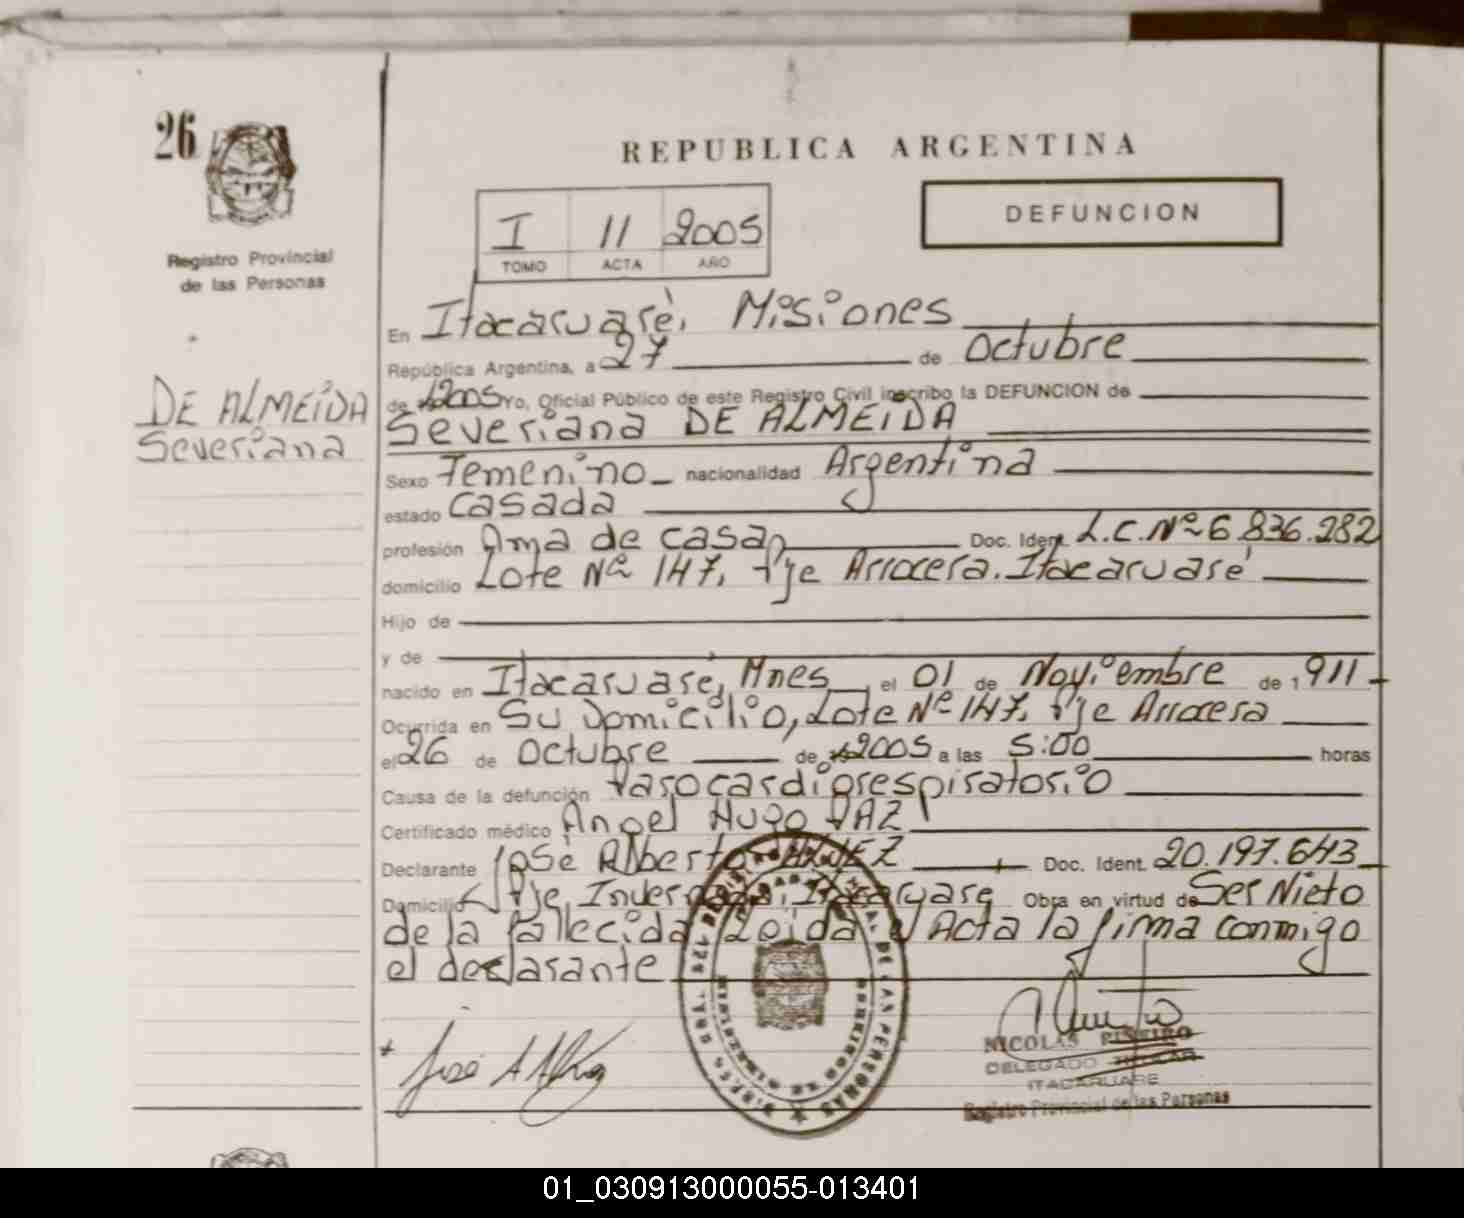 26
Registro Provincial
de las Personas
REPUBLICA ARGENTINA
I 11 2005
TOMO ACTA AÑO
DEFUNCION
DE ALMEIDA
Severiana
En Itacaruaré, Misiones
República Argentina, a 27 de Octubre
de 2005 Yo, Oficial Público de este Registro Civil inscribo la DEFUNCION de
Severiana DE ALMEIDA
Sexo Femenino nacionalidad Argentina
estado Casada
profesión Ama de casa Doc. Ident. L.C.Nº 6.836.282
domicilio Lote Nº 147, Pje Arrocera. Itacaruaré
Hijo de
y de
nacido en Itacaruaré, Mnes el 01 de Noviembre de 1911
Ocurrida en Su Domicilio, Lote Nº 147, Pje Arrocera
el 26 de Octubre de 2005 a las 5:00 horas
Causa de la defunción Parocardiorespiratorio
Certificado médico Angel Hugo PAZ
Declarante José Alberto Doc. Ident. 20.197.643
Domicilio Pje Itacaruare Obra en virtud de Ser Nieto
de la fallecida Leida el Acta la firma conmigo
el declarante
José A
NICOLAS PIÑEIRO
DELEGADO TITULAR
ITACARUARE
Registro Provincial de las Personas
01_030913000055-013401